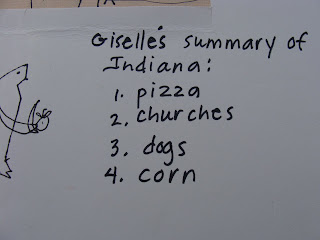 Giselle's summary of
Indiana:
1. pizza
2. churches
3. dogs
4. corn